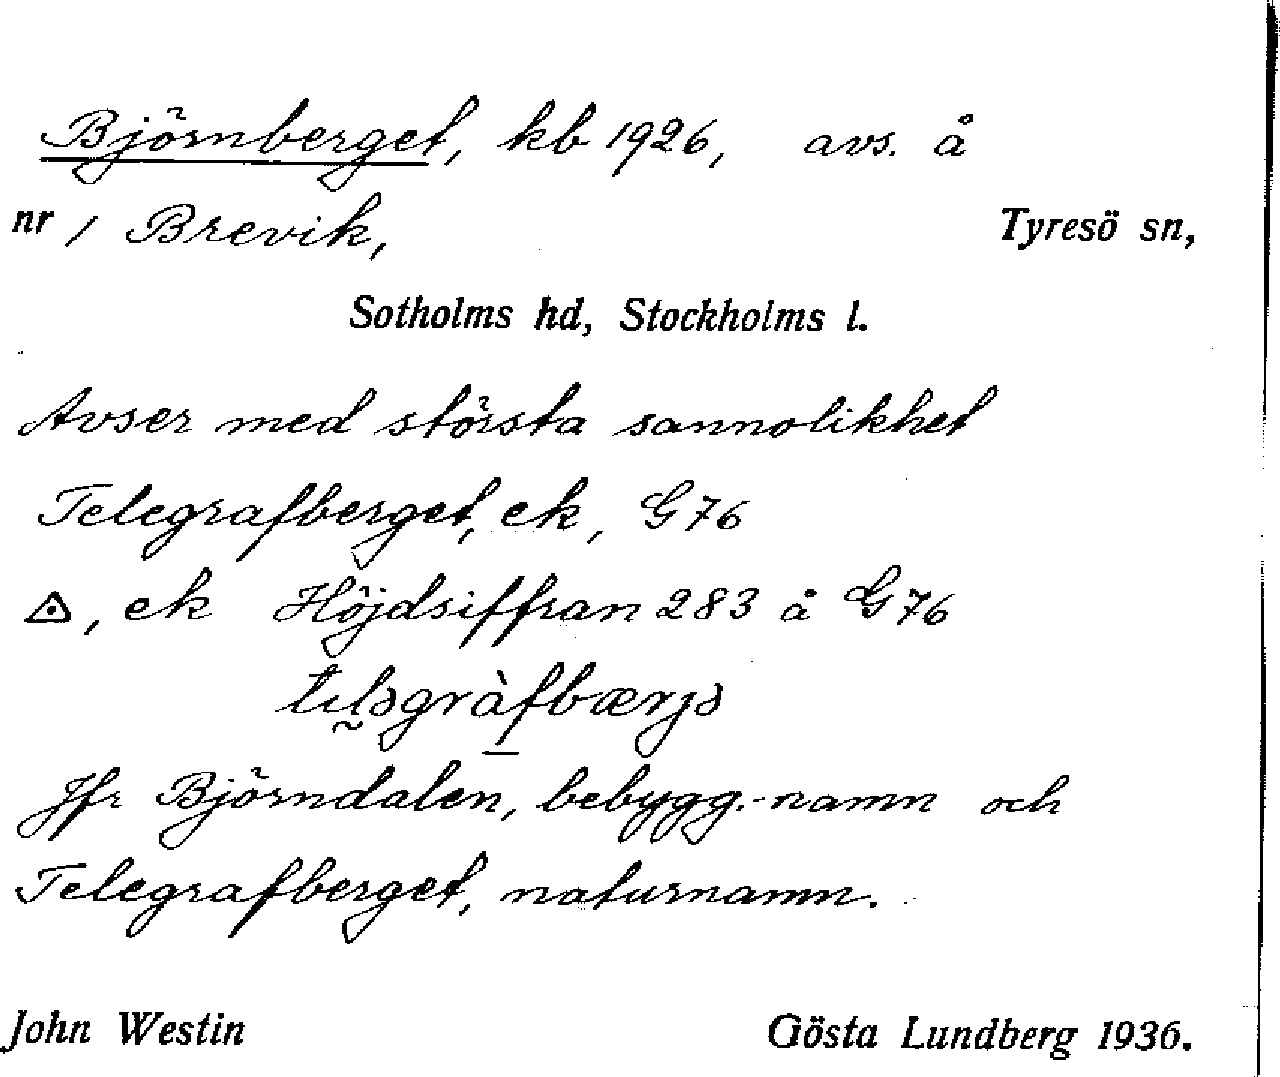 Björnberget, kb 1926, avs. å
nr 1 Brevik, Tyresö sn,
Sotholms hd, Stockholms l.
Avser med största sannolikhet
Telegrafberget, ek, G 76
, ek Höjdsiffran 283 å G 76
Jfr Björndalen, bebygg.-namn och
Telegrafberget, naturnamn.
John Westin Gösta Lundberg 1936.